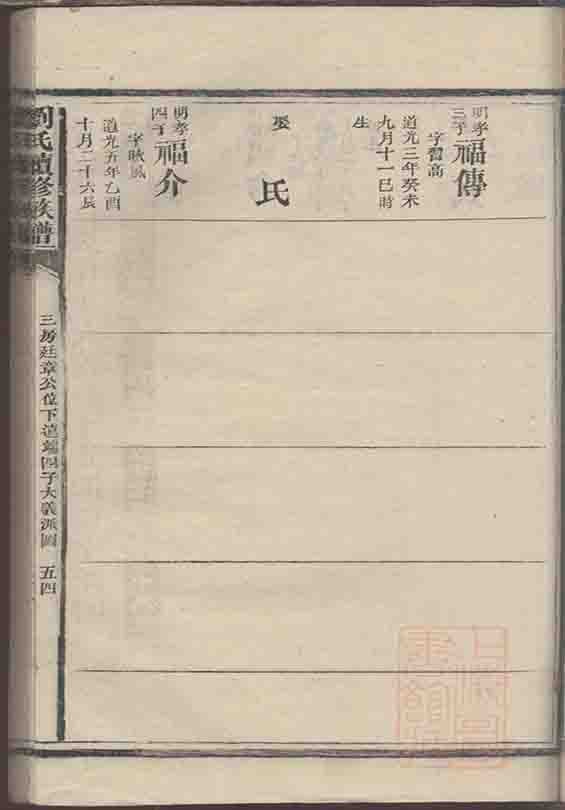 明孝三子
福傳
字習高
道光三年癸未
九月十一巳時
生
娶
氏
明孝四子
福介
字咏風
道光五年乙酉
十月二十六辰
劉氏續修族譜
三房廷章公位下道端四子大義派圖
五四